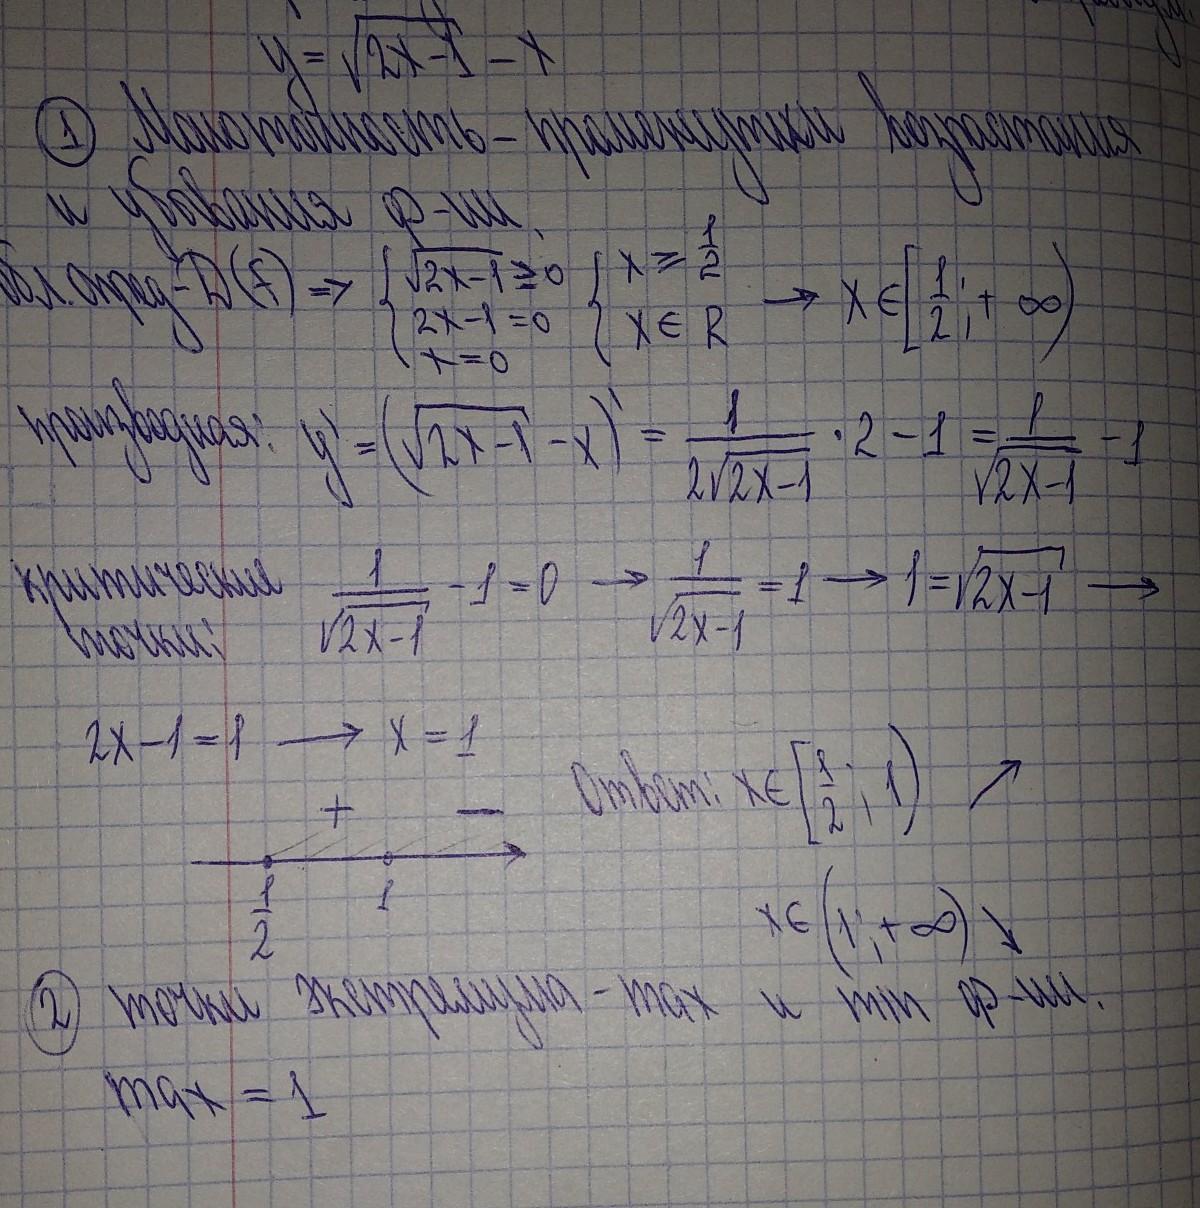 y = √(2x-1) - x
① Монотонность - промежутки возрастания
и убывания ф-ии.
обл. опред - D(f) => { √(2x-1) ≥ 0 { x ≥ 1/2 → x ∈ [1/2; +∞)
2x-1=0 x ∈ R
x=0
производная: y' = (√(2x-1) - x)' = 1/(2√(2x-1)) · 2 - 1 = 1/√(2x-1) - 1
критические 1/√(2x-1) - 1 = 0 → 1/√(2x-1) = 1 → 1 = √(2x-1) →
точки:
2x-1=1 → x = 1
Ответ: x ∈ [1/2; 1) ↗
+ −
1/2 1
x ∈ (1; +∞) ↘
② точки экстремума - max и min ф-ии.
max = 1